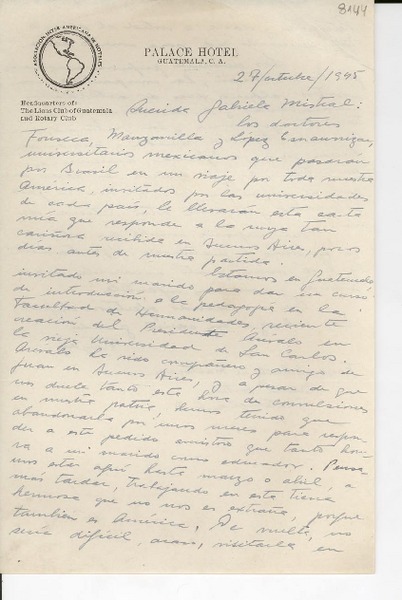 8144
ASOCIACION INTER AMERICANA DE HOTELES
PALACE HOTEL
GUATEMALA, C. A.
27/octubre/1945
Headquarters of:
The Lions Club of Guatemala
and Rotary Club
Querida Gabriela Mistral:
los doctores
Fonseca, Manzanilla y López
universitarios mexicanos que pasarán
por Brasil en un viaje por toda nuestra
América, invitados por las universidades
de cada país, le llevarán esta carta
mía que responde a la suya tan
cariñosa recibida en Buenos Aires, pocos
días antes de nuestra partida.
Estamos en Guatemala
invitado mi marido para dar un curso
de introducción a la pedagogía en la
Facultad de Humanidades, reciente
creación del Presidente Arévalo en
la vieja Universidad de San Carlos.
Arévalo ha sido compañero y amigo de
Juan en Buenos Aires, y a pesar de que
nos duele tanto esta hora de convulsiones
en nuestra patria, hemos tenido que
abandonarla por unos meses para respon-
der a este pedido amistoso que tanto hon-
ra a mi marido como educador. Pensa-
mos estar aquí hasta marzo o abril, a
más tardar, trabajando en esta tierra
hermosa que no nos es extraña, porque
también es América. De vuelta, no
sería difícil, acaso, visitarla en